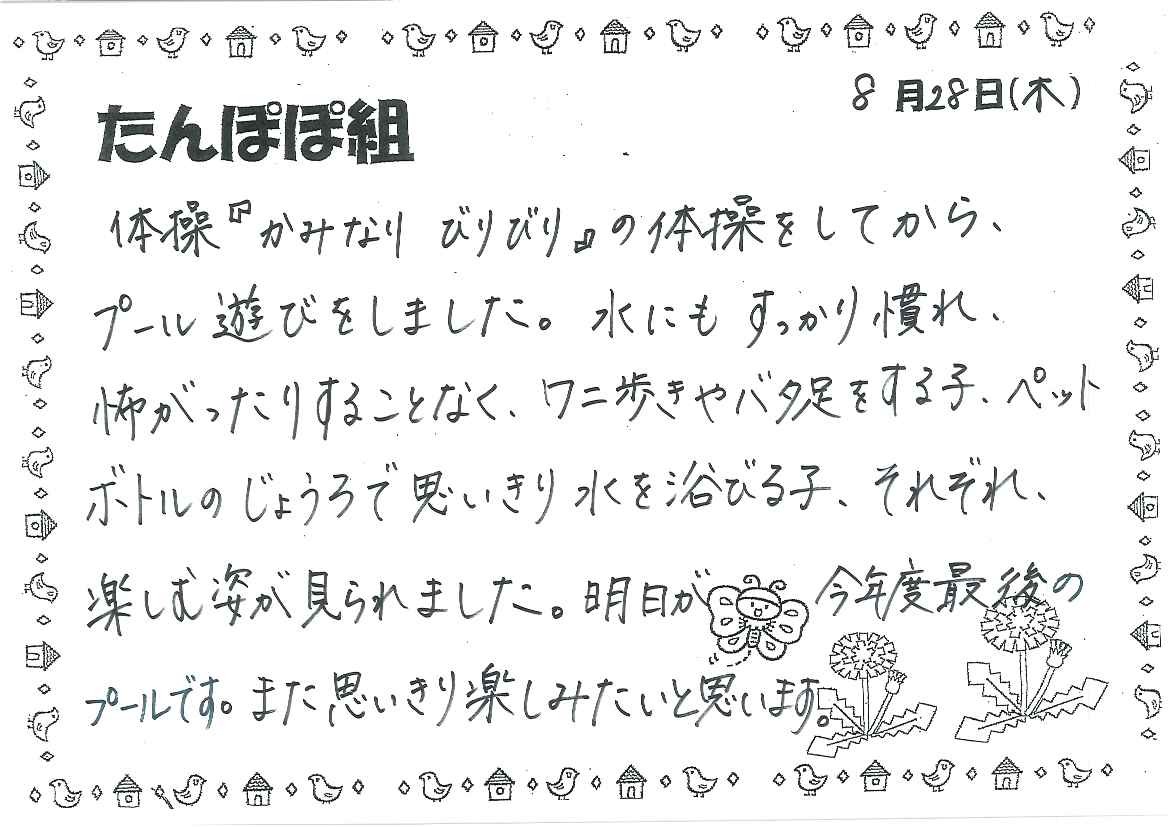 8月28日(木)
たんぽぽ組
体操『かみなり びりびり』の体操をしてから、
プール遊びをしました。水にもすっかり慣れ、
怖がったりすることなく、ワニ歩きやバタ足をする子、ペット
ボトルのじょうろで思いきり水を浴びる子、それぞれ、
楽しむ姿が見られました。明日が 今年度最後の
プールです。また思いきり楽しみたいと思います。